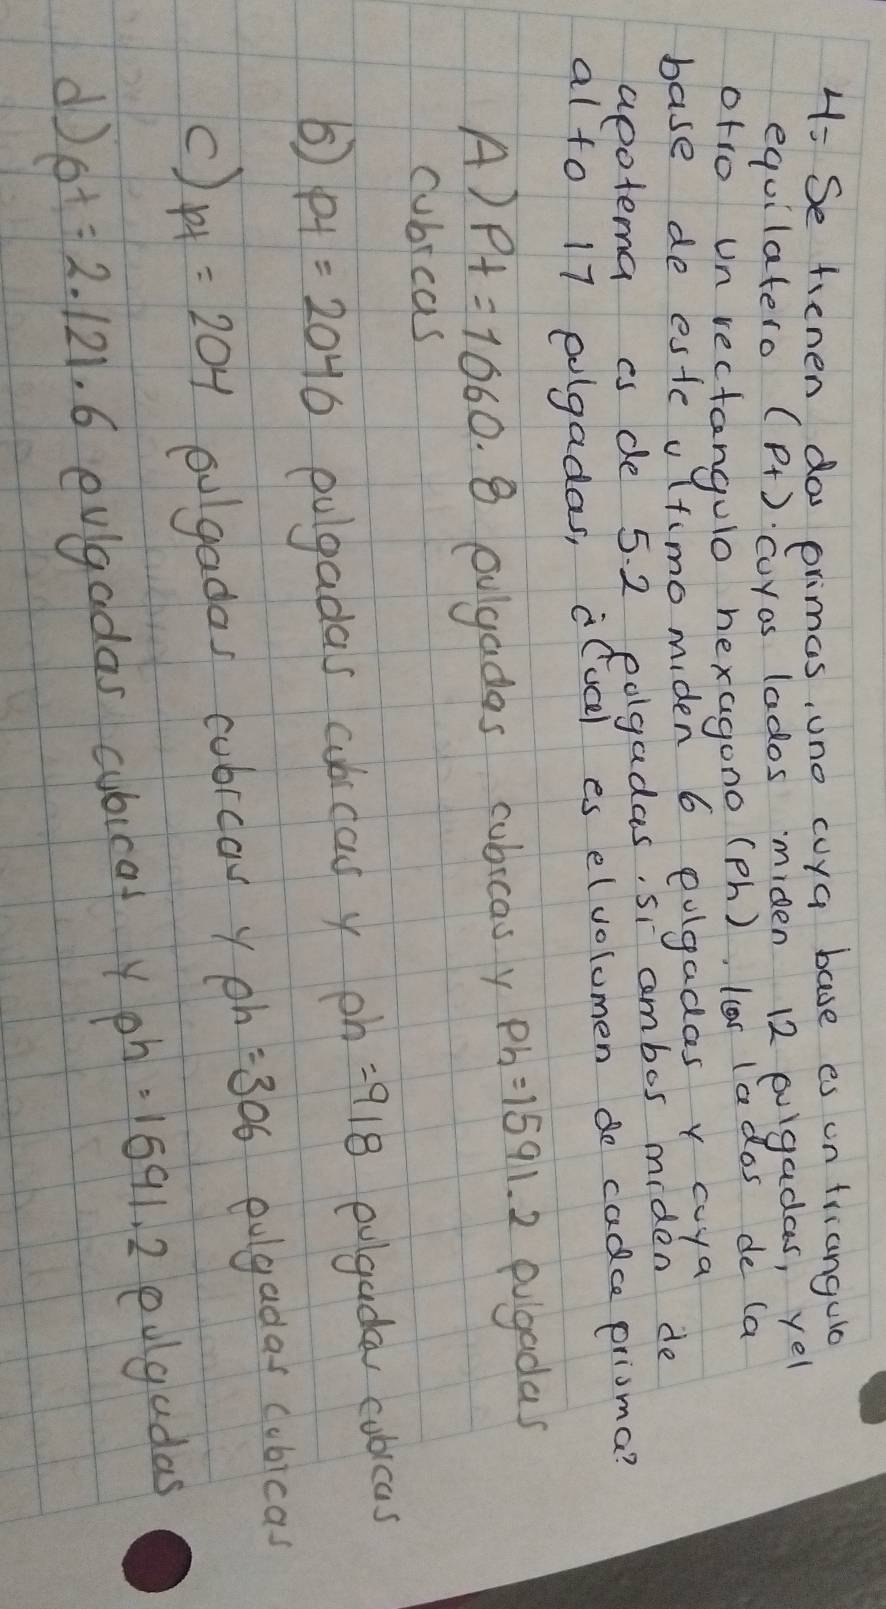 4= Se tienen dos primas, uno cuya base es un triangulo
equilatero (Pt). cuyos lados miden 12 pulgadas, y el
otro un rectangulo hexagono (Ph). los lados de la
base de este ultimo miden 6 pulgadas y cuya
apotema es de 5.2 pulgadas. si ambos miden de
alto 17 pulgadas, ¿Cual es el volumen de cada prisma?
A) Pt = 1060.8 pulgadas cubicas y Ph = 1591.2 pulgadas
cubicas
b) pt = 2046 pulgadas cubicas y ph = 918 pulgadas cubicas
c) pt = 204 pulgadas cubicas y ph = 306 pulgadas cubicas
d) pt = 2.121.6 pulgadas cubicas y ph = 1591.2 pulgadas